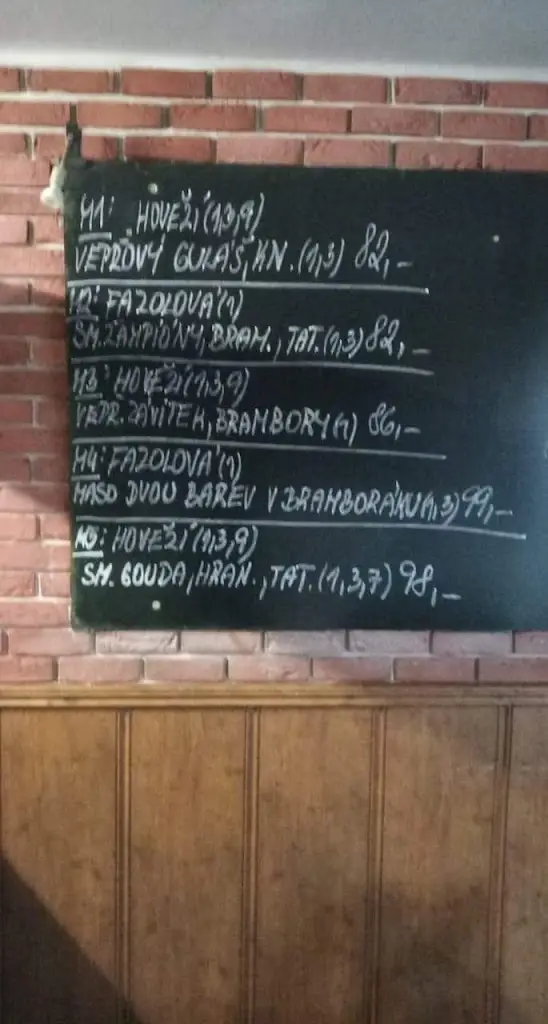 M1: HOVĚZÍ (1,3,9)
VEPŘOVÝ GULÁŠ, KN. (1,3) 82,-
M2: FAZOLOVÁ (1)
SM. ŽAMPIÓNY, BRAM., TAT. (1,3) 82,-
M3: HOVĚZÍ (1,3,9)
VEPR. ZÁVITEK, BRAMBORY (1) 86,-
M4: FAZOLOVÁ (1)
MASO DVOU BAREV V BRAMBORÁKU (1,3) 99,-
M5: HOVĚZÍ (1,3,9)
SM. GOUDA, HRAN., TAT. (1,3,7) 98,-